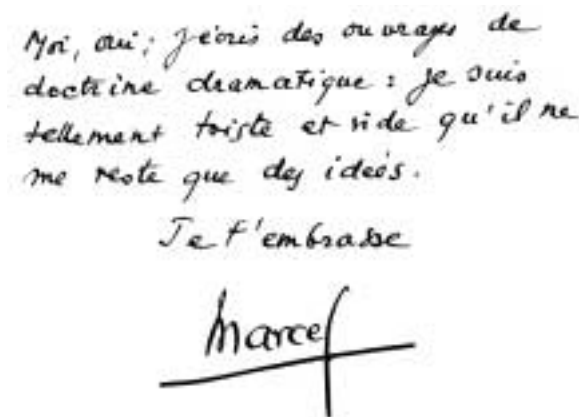 Moi, oui ; j'écris des ouvrages de
doctrine dramatique : je suis
tellement triste et vide qu'il ne
me reste que des idées.
Je t'embrasse
Marcel